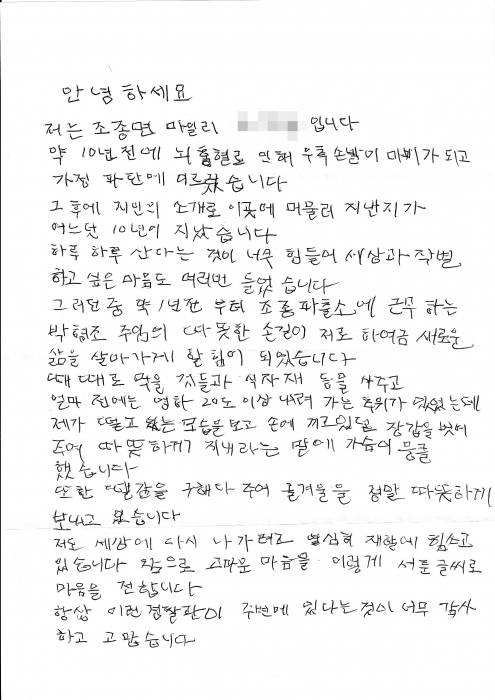 안녕하세요
저는 조종면 마일리 입니다
약 10년전에 뇌출혈로 인해 우측 손발이 마비가 되고
가정 파탄에 이르렀습니다
그 후에 지인의 소개로 이곳에 머물러 지낸지가
어느덧 10년이 지났습니다
하루 하루 산다는 것이 너무 힘들어 세상과 작별
하고 싶은 마음도 여러번 들었습니다
그러던 중 약 1년전 부터 조종파출소에 근무 하는
박형조 주임의 따뜻한 손길이 저로 하여금 새로운
삶을 살아가게 할 힘이 되었습니다
때때로 먹을 것들과 식자재 등을 사주고
얼마 전에는 영하 20도 이상 내려 가는 추위가 있었는데
제가 떨고 있는 모습을 보고 손에 끼고있던 장갑을 벗어
주며 따뜻하게 지내라는 말에 가슴이 뭉클
했습니다
또한 땔감을 구해다 주어 올겨울을 정말 따뜻하게
보내고 있습니다
저도 세상에 다시 나가려고 열심히 재활에 힘쓰고
있습니다 참으로 고마운 마음을 이렇게 서툰글씨로
마음을 전합니다
항상 이런경찰관이 주변에 있다는것이 너무 감사
하고 고맙습니다